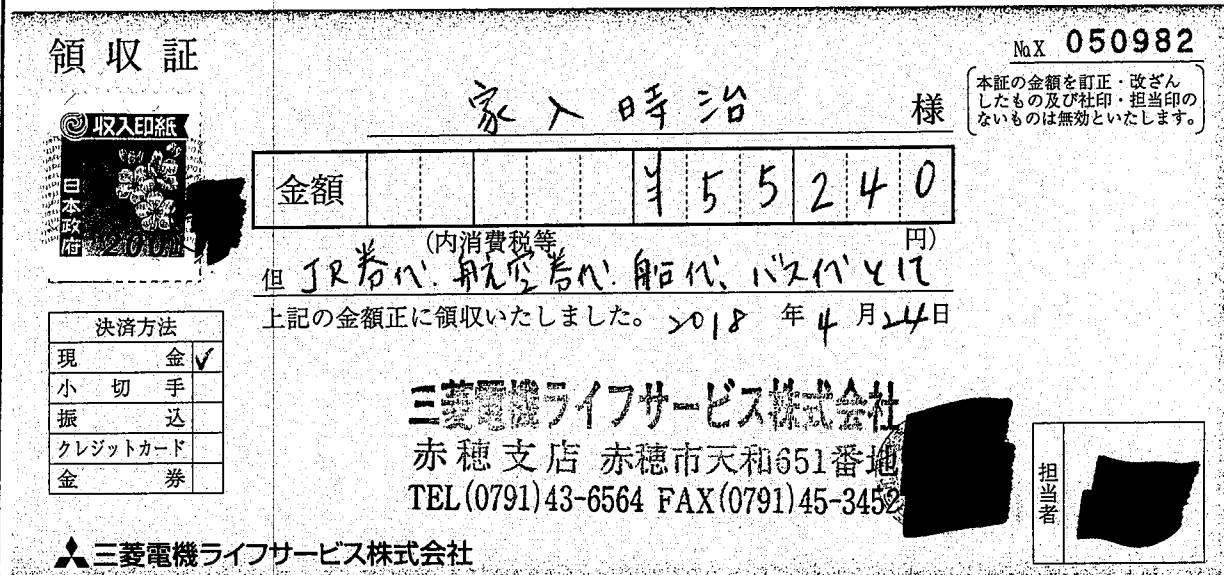 領収証
NoX 050982
家入時治 様
本証の金額を訂正・改ざん
したもの及び社印・担当印の
ないものは無効といたします。
収入印紙
日本政府
200
金額 ¥55240
(内消費税等 円)
但 JR券代、航空券代、船代、バス代として
上記の金額正に領収いたしました。 2018 年 4 月 24 日
決済方法
現金 ✓
小切手
振込
クレジットカード
金券
三菱電機ライフサービス株式会社
赤穂支店 赤穂市天和651番地
TEL(0791)43-6564 FAX(0791)45-3452
担当者
三菱電機ライフサービス株式会社